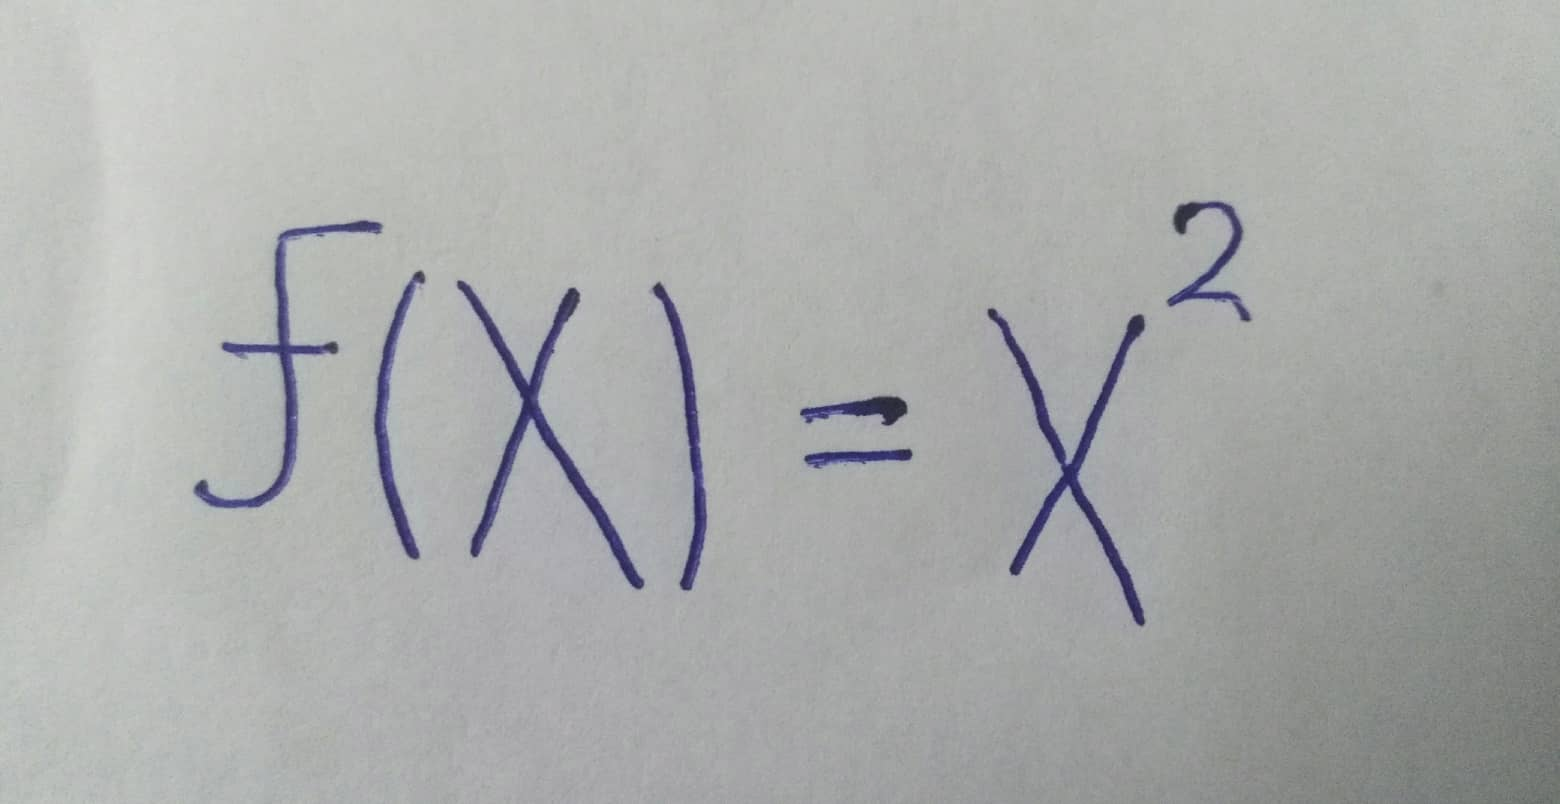 f(x) = x²